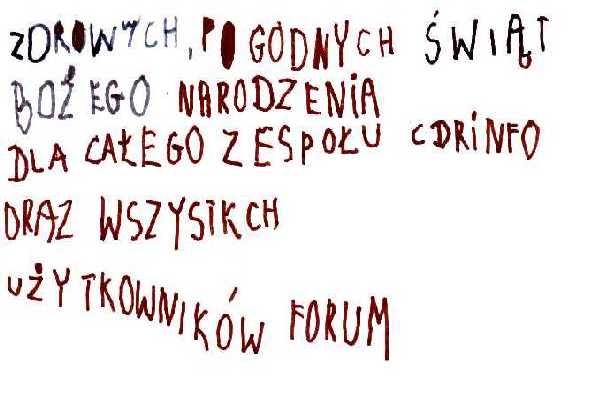 ZDROWYCH, POGODNYCH ŚWIĄT
BOŻEGO NARODZENiA
DLA CAŁEGO ZESPOŁU CDRiNFO
ORAZ WSZYSTKCH
UŻYTKOWNIKÓW FORUM